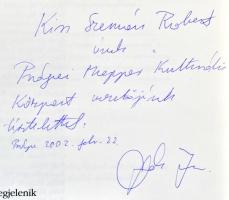 Kiss Szemán Róbert
-nak a
Prágai Magyar Kulturális
Központ vezetőjének
tisztelettel.
Prága 2002. febr. 22.
egjelenik